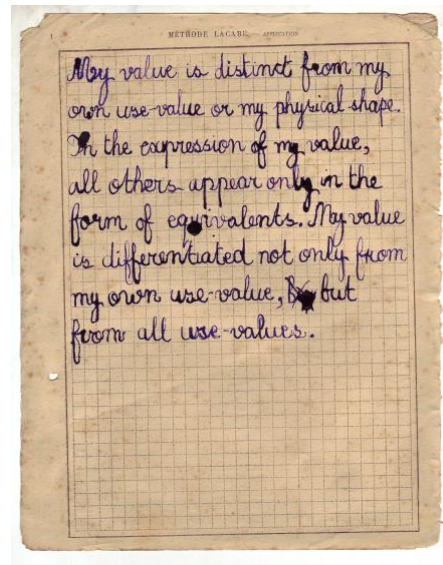 1 MÉTHODE LACABE. — APPLICATION
My value is distinct from my
own use-value or my physical shape.
In the expression of my value,
all others appear only in the
form of equivalents. My value
is differentiated not only from
my own use-value, but
from all use-values.